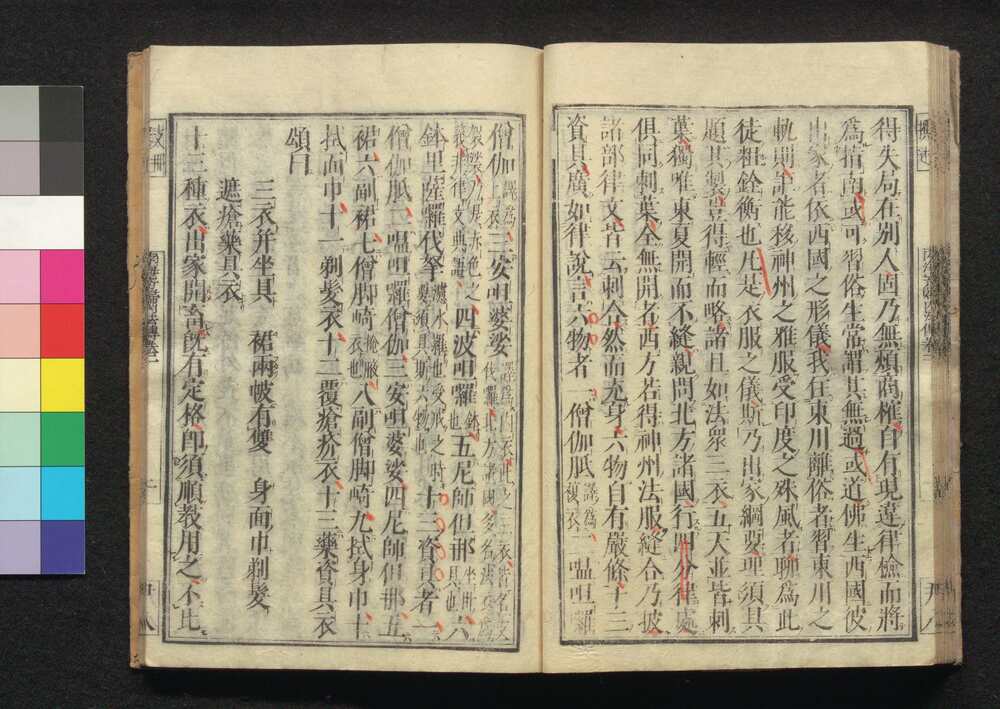 得失局在別人固乃無煩商榷自有現違律檢而將
爲指南或可習俗生常謂其無過或道佛生西國彼
出家者依西國之形儀我住東川離俗者習東川之
軌則詎能移神州之雅服受印度之殊風者聊爲此
徒粗銓衡也凡是衣服之儀斯乃出家綱要理須具
題其製豈得輕而略諸且如法衆三衣五天並皆刺
葉獨唯東夏開而不縫親問北方諸國行四分律處
俱同刺葉全無開者西方若得神州法服縫合乃披
諸部律文皆云刺合然而充身六物自有嚴條十三
資具廣如律說言六物者一僧伽胝譯爲複衣二嗢呾羅
僧伽譯爲上衣三安呾婆娑譯爲內衣此之三衣皆名支伐羅北方諸國多名法衣爲
袈裟乃是赤色之義非律文典語四波呾囉鉢也五尼師但那坐臥具也六
鉢里薩囉伐拏濾水羅也受戒之時要須具斯六物也十三資具者一
僧伽胝二嗢呾囉僧伽三安呾婆娑四尼師但那五
裙六副裙七僧脚崎掩腋衣也八副僧脚崎九拭身巾十
拭面巾十一剃髮衣十二覆瘡疥衣十三藥資具衣
頌曰
三衣并坐具 裙兩帔有雙 身面巾剃髮
遮瘡藥具衣
十三種衣出家開畜既有定格即須順教用之不比